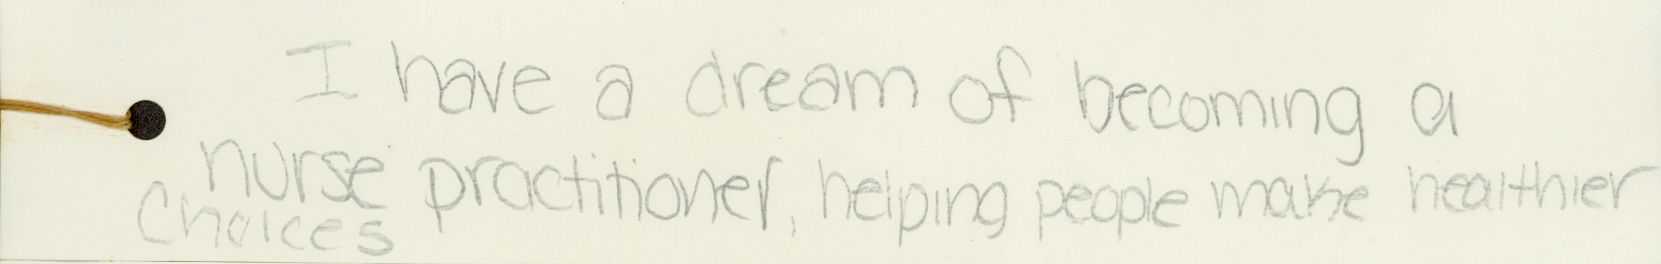 I have a dream of becoming a
nurse practitioner, helping people make healthier
choices